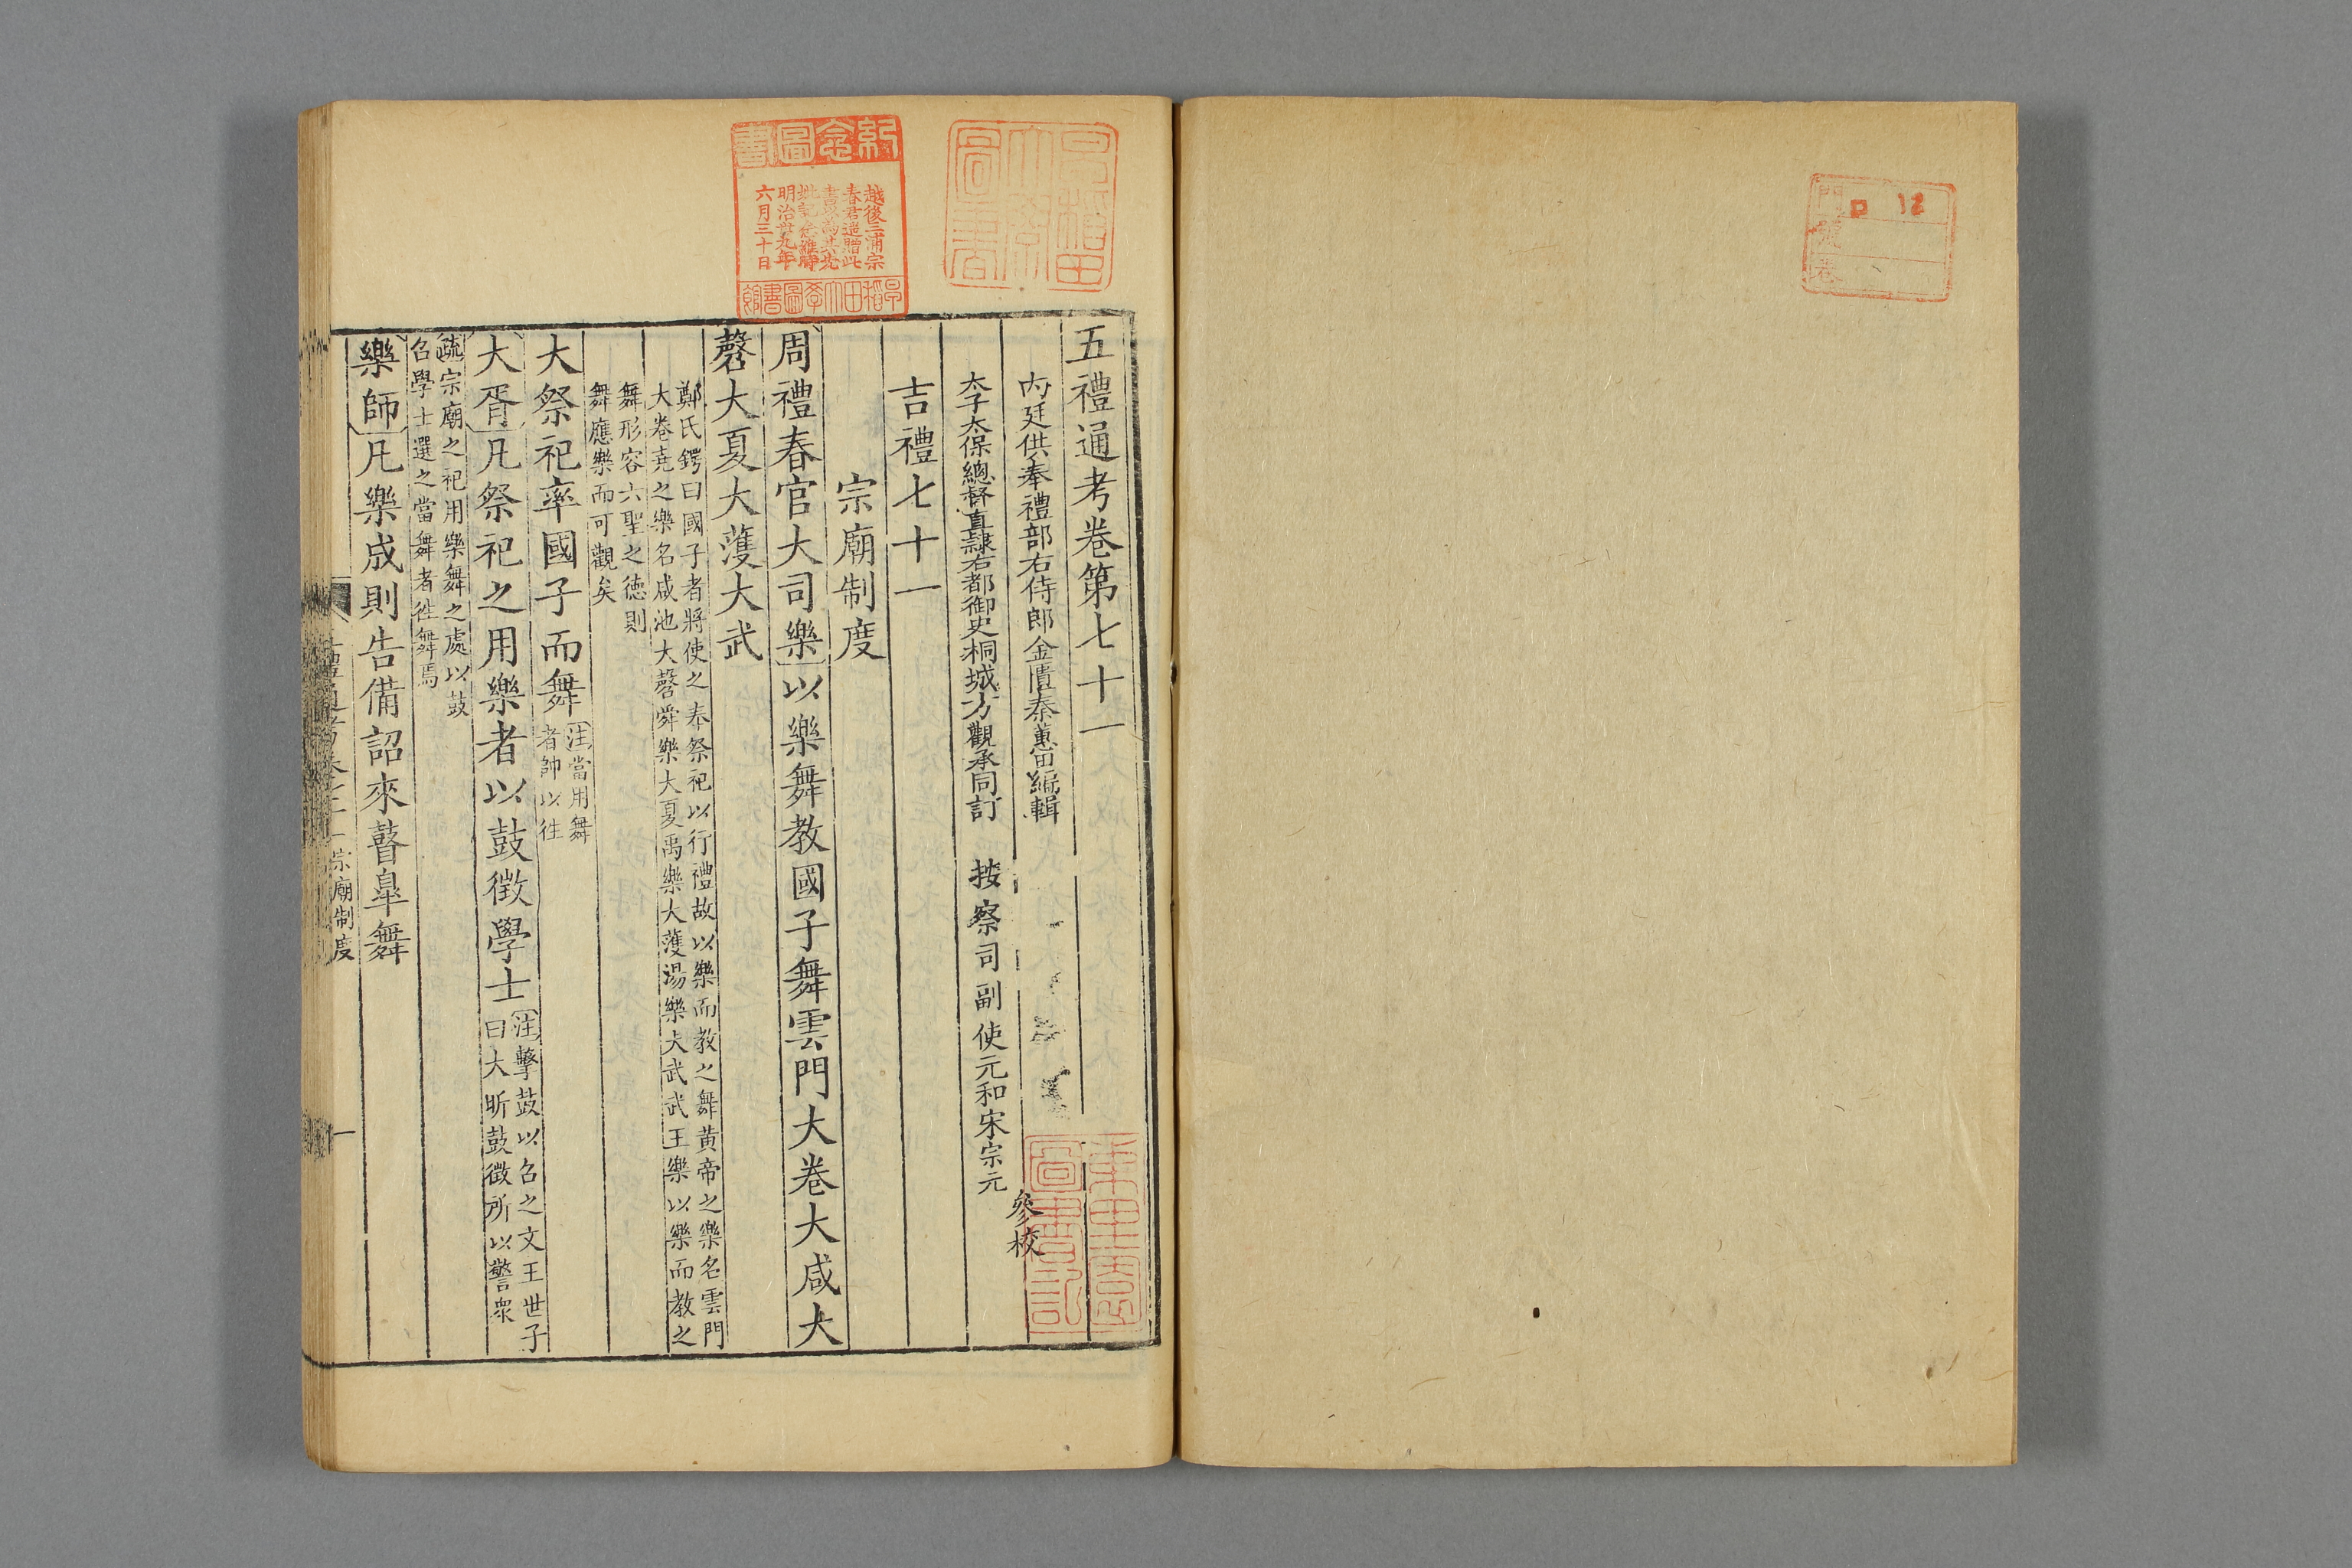 五禮通考卷第七十一
內廷供奉禮部右侍郎金匱秦蕙田編輯
太子太保總督直隸右都御史桐城方觀承同訂
按察司副使元和宋宗元
參校
吉禮七十一
宗廟制度
周禮春官大司樂以樂舞教國子舞雲門大卷大咸大
磬大夏大濩大武
鄭氏鍔曰國子者將使之奉祭祀以行禮故以樂而教之舞黃帝之樂名雲門
大卷堯之樂名咸池大磬舜樂大夏禹樂大濩湯樂大武武王樂以樂而教之
舞形容六聖之德則
舞應樂而可觀矣
大祭祀率國子而舞
注當用舞
者帥以往
大胥凡祭祀之用樂者以鼓徵學士
注擊鼓以召之文王世子
曰大昕鼓徵所以警衆
疏宗廟之祀用樂舞之處以鼓
召學士選之當舞者往舞焉
樂師凡樂成則告備詔來瞽臯舞
宗廟制度
一
紀念圖書
越後三浦宗
春君遺贈此
書以爲其先
明治卅九年
六月三十日
早稻田大學圖書館
早稻田大學圖書
門
號
卷
口 12
圖書記